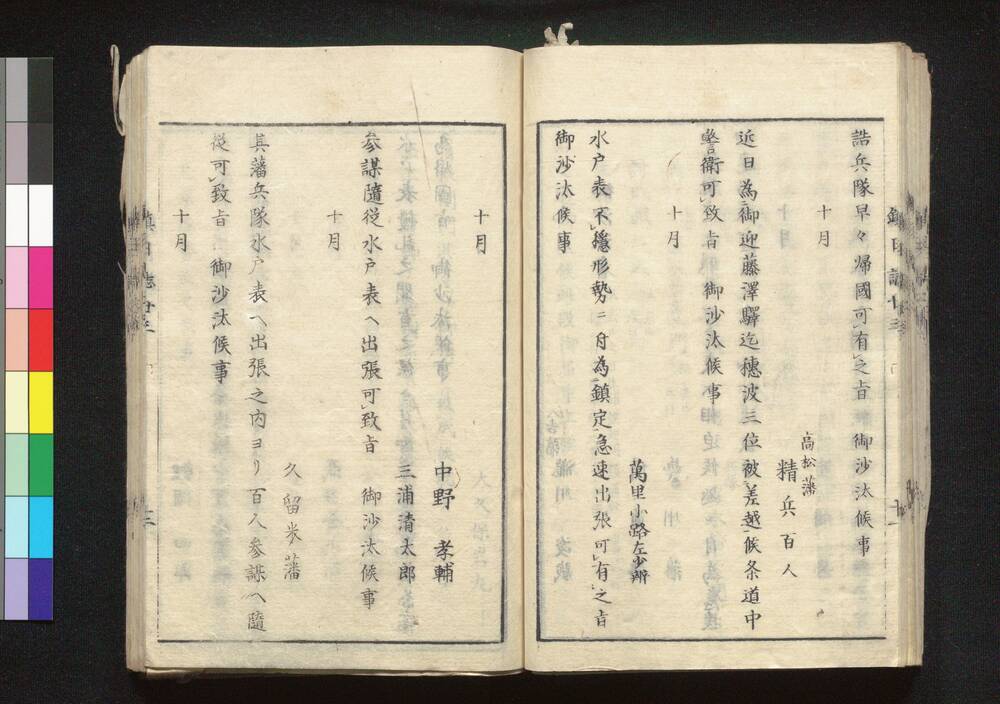 詰兵隊早々歸國可有之旨 御沙汰候事
十月
高松藩
精兵百人
近日為御迎藤澤驛迄穗波三位被差越候条道中
警衛可致旨御沙汰候事
十月
萬里小路左少辨
水戸表不穩形勢ニ付為鎮定急速出張可有之旨
御沙汰候事
十月
中野 孝輔
三浦清太郎
参謀隨従水戸表ヘ出張可致旨 御沙汰候事
十月
久留米藩
其藩兵隊水戸表ヘ出張之内ヨリ百人参謀ヘ隨
従可致旨 御沙汰候事
十月